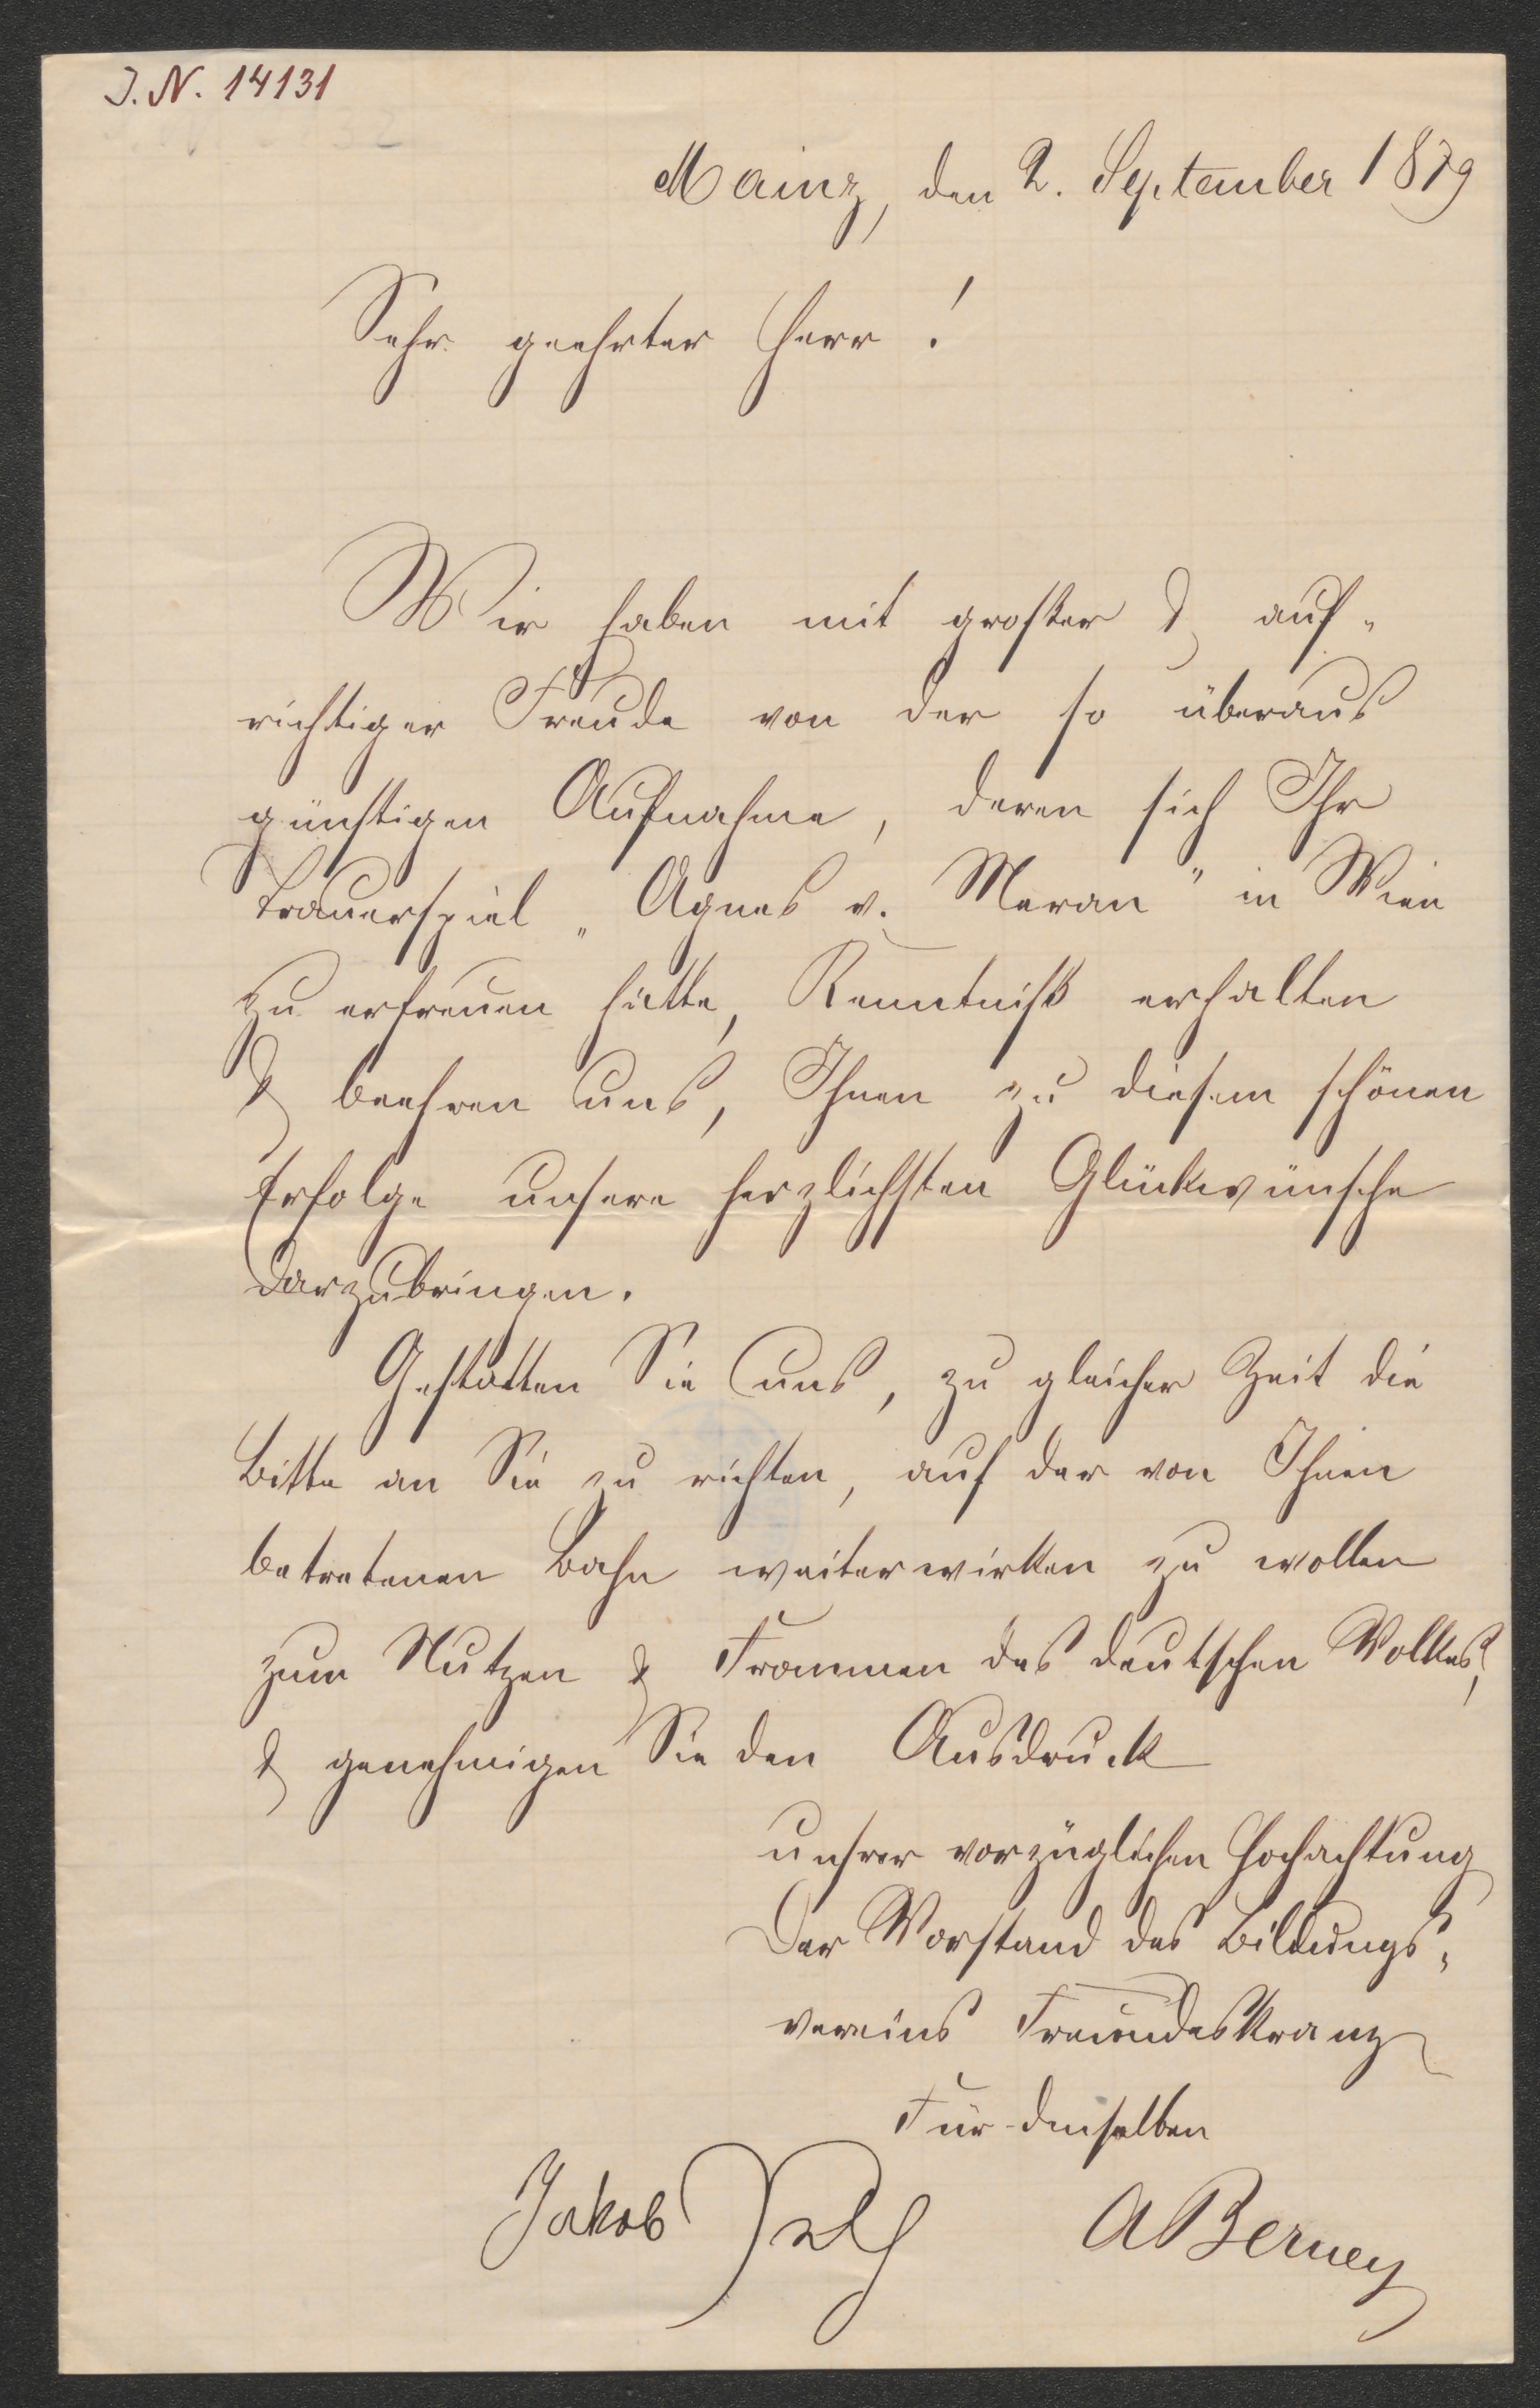 J. N. 14131
Mainz, den 2. September 1879
Sehr geehrter Herr!
Wir haben mit großer & auf-
richtiger Freude von der so überaus
günstigen Aufnahme, deren sich Ihr
Trauerspiel „Agnes v. Meran" in Wien
zu erfreuen hatte, Kenntniß erhalten
& beehren uns, Ihnen zu diesem schönen
Erfolge unsere herzlichsten Glückwünsche
darzubringen.
Gestatten Sie uns, zu gleicher Zeit die
Bitte an Sie zu richten, auf der von Ihnen
betretenen Bahn weiterwirken zu wollen
zum Nutzen & Frommen des deutschen Volkes,
& genehmigen Sie den Ausdruck
unsrer vorzüglichen Hochachtung
Der Vorstand des Bildungs-
vereins Freundeskranz
Für denselben
Jakob
A Berney